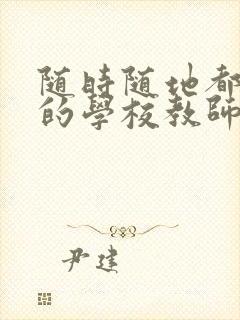 随時随地都
的學校教師
尹建